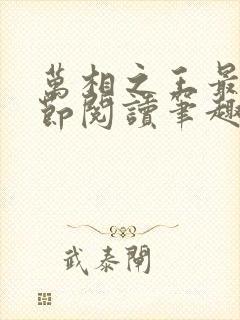 萬相之王最
節閱讀筆趣
武泰閘